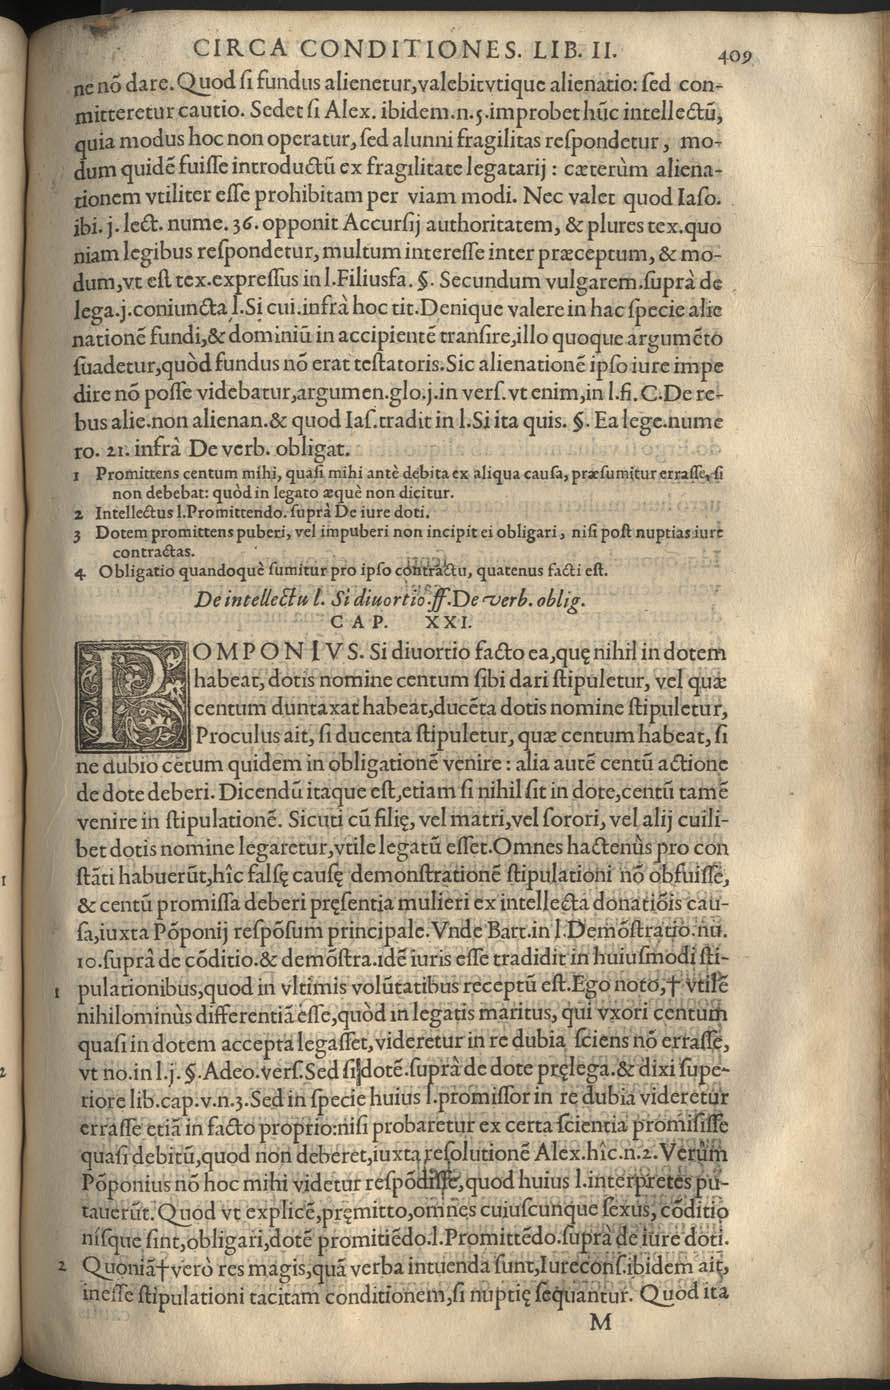 CIRCA CONDITIONES. LIB. II. 409
ne nõ dare. Quod ſi fundus alienetur,valebit vtique alienatio: ſed con-
mitteretur cautio. Sed et ſi Alex. ibidem.n.5.improbet hũc intellectũ,
quia modus hoc non operatur, ſed alunni fragilitas reſpondetur, mo-
dum quidẽ fuiſſe introductũ ex fragilitate legatarij : cæterùm aliena-
tionem vtiliter eſſe prohibitam per viam modi. Nec valet quod Iaſo.
ibi. j. lect. nume. 36. opponit Accurſij authoritatem, & plures tex.quo
niam legibus reſpondetur, multum intereſſe inter præceptum, & mo-
dum,vt eſt tex.expreſſus in l.Filiusfa. §. Secundum vulgarem.ſuprà de
lega.j.coniuncta l.Si cui.infrà hoc tit.Denique valere in hac ſpecie alie
nationẽ fundi,& dominiũ in accipientẽ tranſire,illo quoque argumẽto
ſuadetur,quòd fundus nõ erat teſtatoris.Sic alienationẽ ipſo iure impe
dire nõ poſſe videbatur,argumen.glo.j.in verſ.vt enim,in l.fi.C.De re-
bus alie.non alienan.& quod Iaſ.tradit in l.Si ita quis. §. Ea lege.nume
ro. 21. infrà De verb. obligat.
1 Promittens centum mihi, quaſi mihi antè debita ex aliqua cauſa, præſumitur erraſſe, ſi
non debebat: quòd in legato æquè non dicitur.
2 Intellectus l.Promittendo. ſuprà De iure doti.
3 Dotem promittens puberi, vel impuberi non incipit ei obligari, niſi poſt nuptias iure
contractas.
4 Obligatio quandoquè ſumitur pro ipſo contractu, quatenus facti eſt.
De intellectu l. Si diuortio.ff.De verb. oblig.
CAP. XXI.
POMPONIVS. Si diuortio facto ea,quę nihil in dotem
habeat, dotis nomine centum ſibi dari ſtipuletur, vel quæ
centum duntaxat habeat,ducẽta dotis nomine ſtipuletur,
Proculus ait, ſi ducenta ſtipuletur, quæ centum habeat, ſi
ne dubio cẽtum quidem in obligationẽ venire : alia autẽ centũ actione
de dote deberi. Dicendũ itaque eſt,etiam ſi nihil ſit in dote,centũ tamẽ
venire in ſtipulationẽ. Sicuti cũ filię, vel matri,vel ſorori, vel alij cuili-
bet dotis nomine legaretur,vtile legatũ eſſet.Omnes hactenùs pro con
ſtãti habuerũt,hîc falſę cauſę demonſtrationẽ ſtipulationi nõ obfuiſſe,
& centũ promiſſa deberi pręſentia mulieri ex intellecta donatiõis cau-
ſa,iuxta Põponij reſpõſum principale.Vnde Bart.in l.Demõſtratio.nu.
10.ſuprà de cõditio.& demõſtra.idẽ iuris eſſe tradidit in huiuſmodi ſti-
1 pulationibus,quod in vltimis volũtatibus receptũ eſt.Ego noto,† vtilẽ
nihilominùs differentiã eſſe,quòd in legatis maritus, qui vxori centum
quaſi in dotem accepta legaſſet,videretur in re dubia ſciens nõ erraſſe,
vt no.in l.j. §.Adeo.verſ.Sed ſi dotẽ.ſuprà de dote pręlega.& dixi ſupe-
riore lib.cap.v.n.3.Sed in ſpecie huius l.promiſſor in re dubia videretur
erraſſe etiã in facto proprio:niſi probaretur ex certa ſcientia promiſiſſe
quaſi debitũ,quod non deberet,iuxta reſolutionẽ Alex.hîc.n.2.Verùm
Põponius nõ hoc mihi videtur reſpõdiſſe,quod huius l.interpretes pu-
tauerũt.Quod vt explicẽ,pręmitto,omnes cuiuſcunque ſexus, cõditio
niſque ſint,obligari,dotẽ promittẽdo.l.Promittẽdo.ſuprà de iure doti.
2 Quoniã†verò res magis,quã verba intuenda ſunt,Iureconſ.ibidem ait,
ineſſe ſtipulationi tacitam conditionem,ſi nuptię ſequantur. Quod ita
M